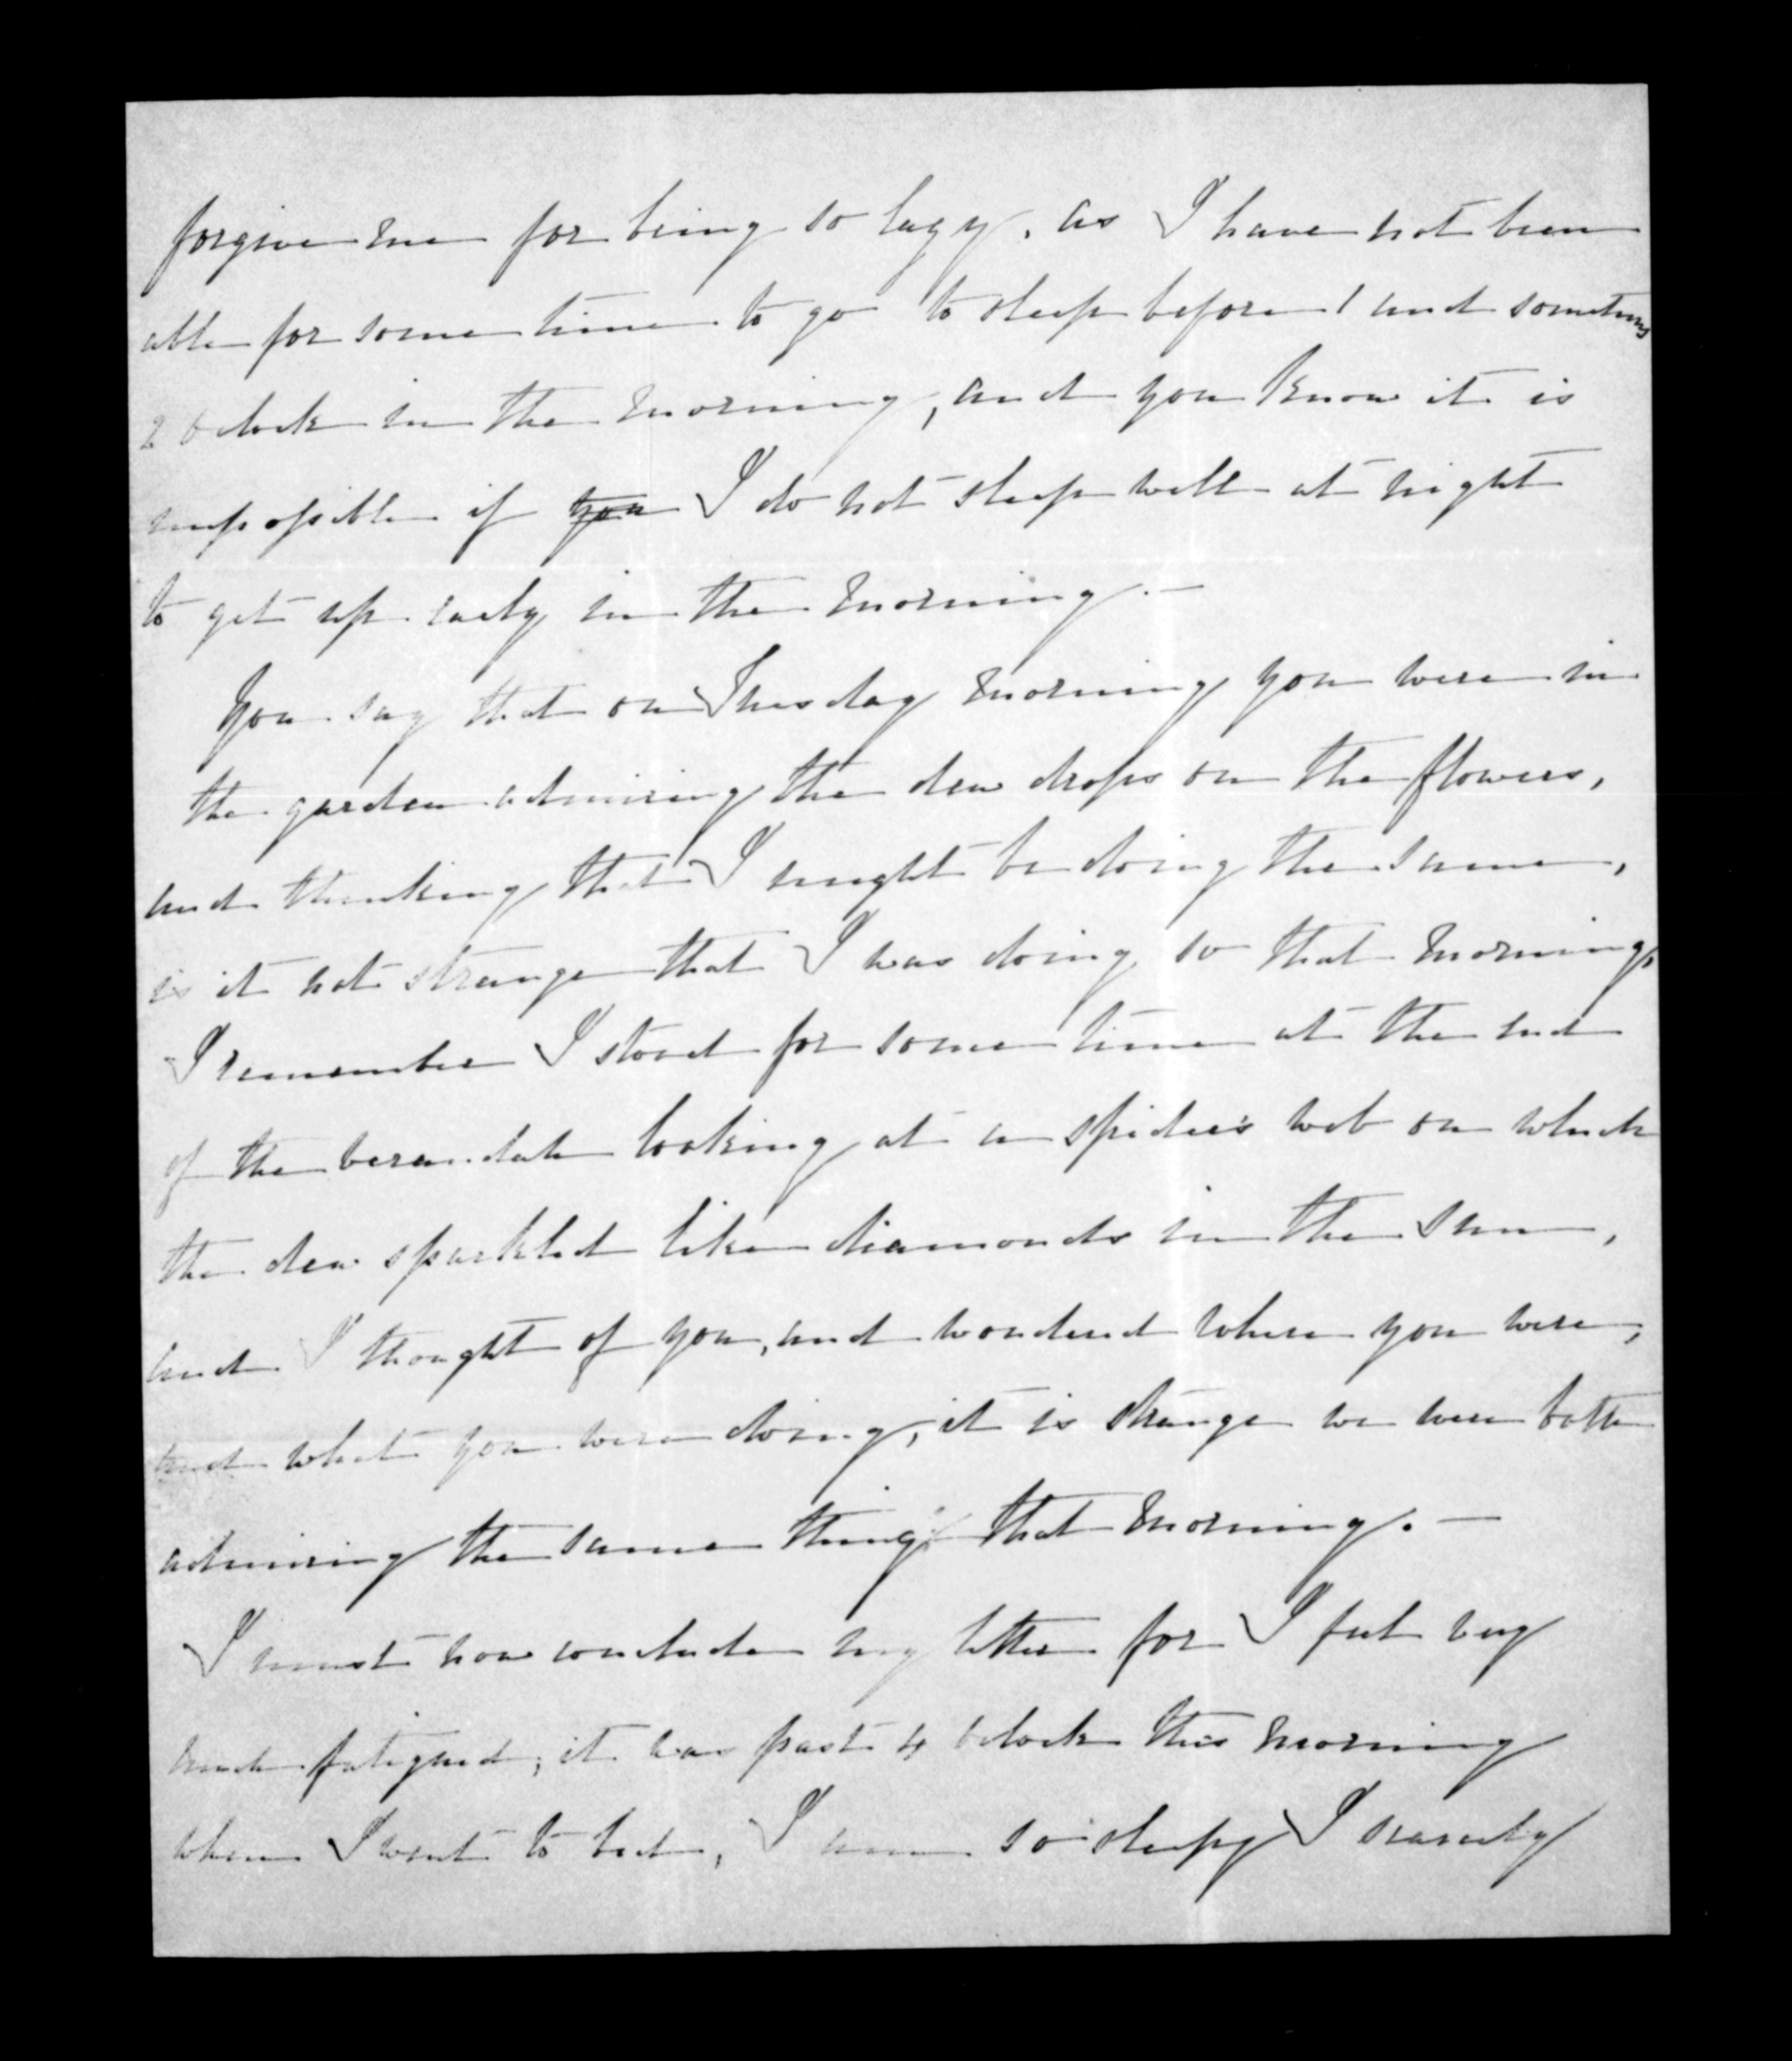 forgive me for being so lazy, as I have not been
able for some time to go to sleep before 1 and sometimes
2 oclock in the morning, and you know it is
impossible if you I do not sleep well at night
to get up early in the morning. —
You say that on Tuesday morning you were in
the garden admiring the dew drops on the flowers,
and thinking that I might be doing the same,
is it not strange that I was doing so that morning,
I remember I stood for some time at the end
of the verandah looking at a spider's web on which
the dew sparkled like diamonds in the sun,
and I thought of you, and wondered where you were,
and what you were doing, it is strange we were both
admiring the same thing that morning. —
I must now conclude my letter for I feel very
much fatigued, it was past 4 oclock this morning
when I went to bed, I am so sleepy I scarcely